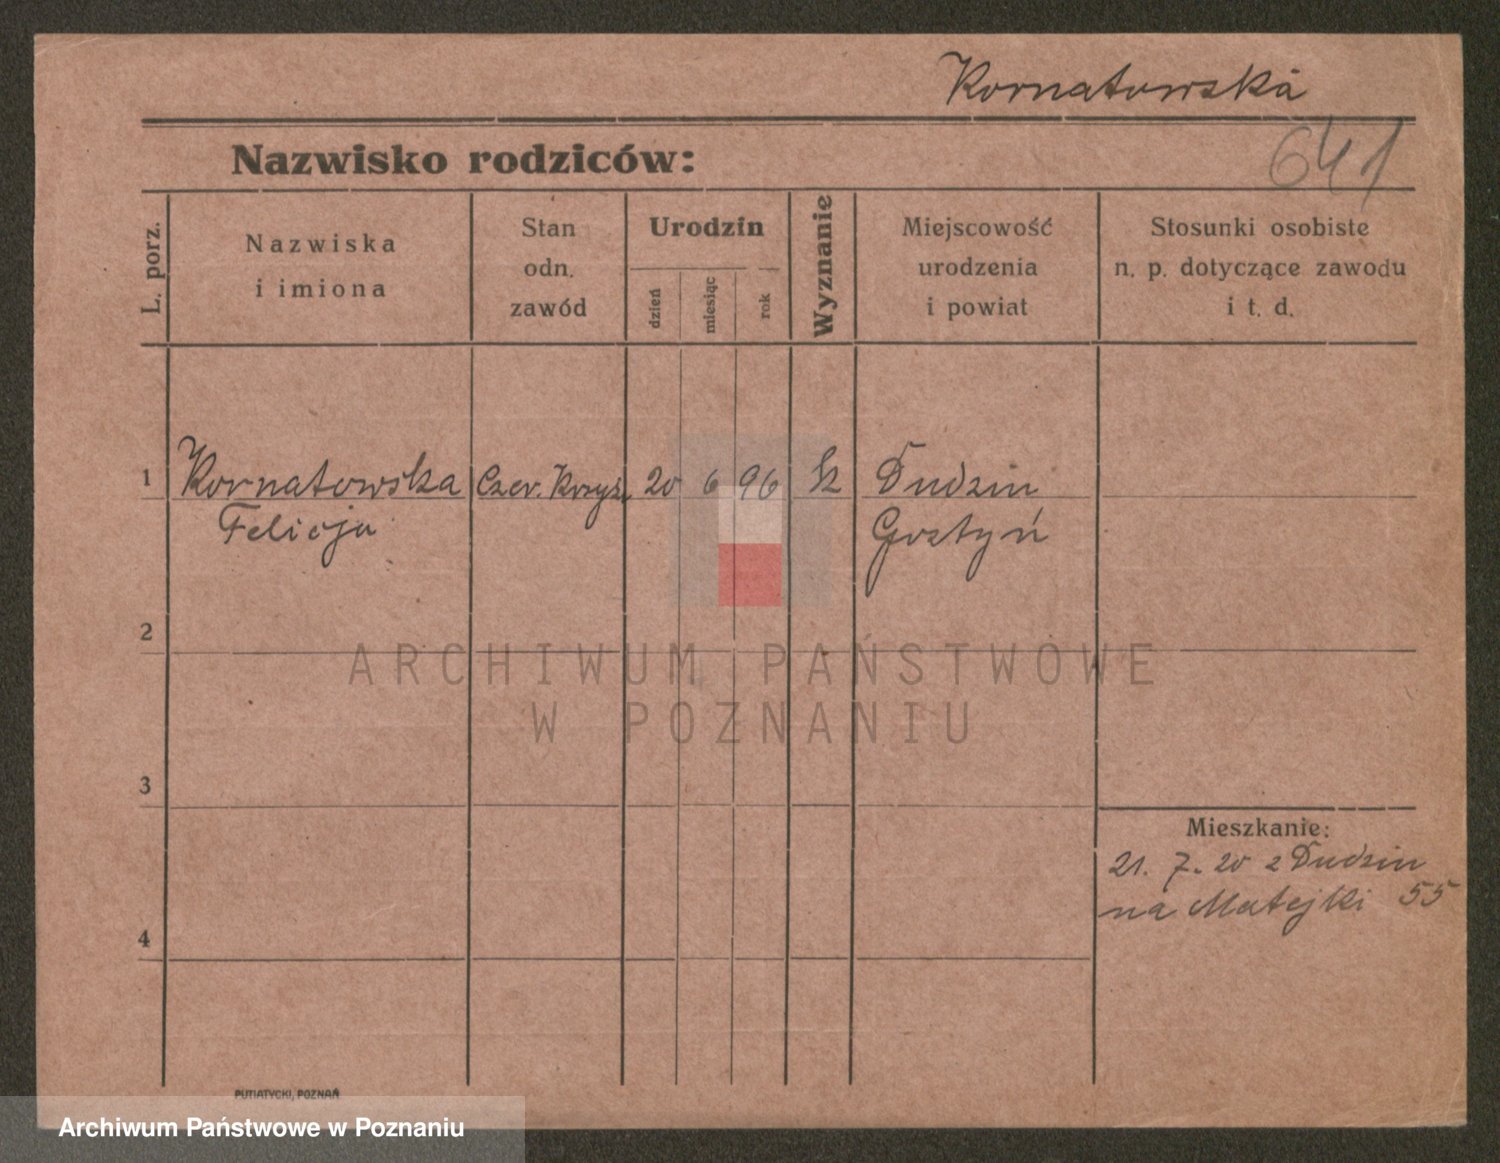 Kornatowska
641
Nazwisko rodziców:
L. porz.
Nazwiska
i imiona
Stan
odn.
zawód
Urodzin
dzień
miesiąc
rok
Wyznanie
Miejscowość
urodzenia
i powiat
Stosunki osobiste
n. p. dotyczące zawodu
i t. d.
1 Kornatowska Czer. Krzyż 20 6 96 k Dudzin
Felicja Gostyń
2
ARCHIWUM PAŃSTWOWE
W POZNANIU
3
Mieszkanie:
21. 7. 20 z Dudzin
na Matejki 55
4
PUTIATYCKI, POZNAŃ
Archiwum Państwowe w Poznaniu